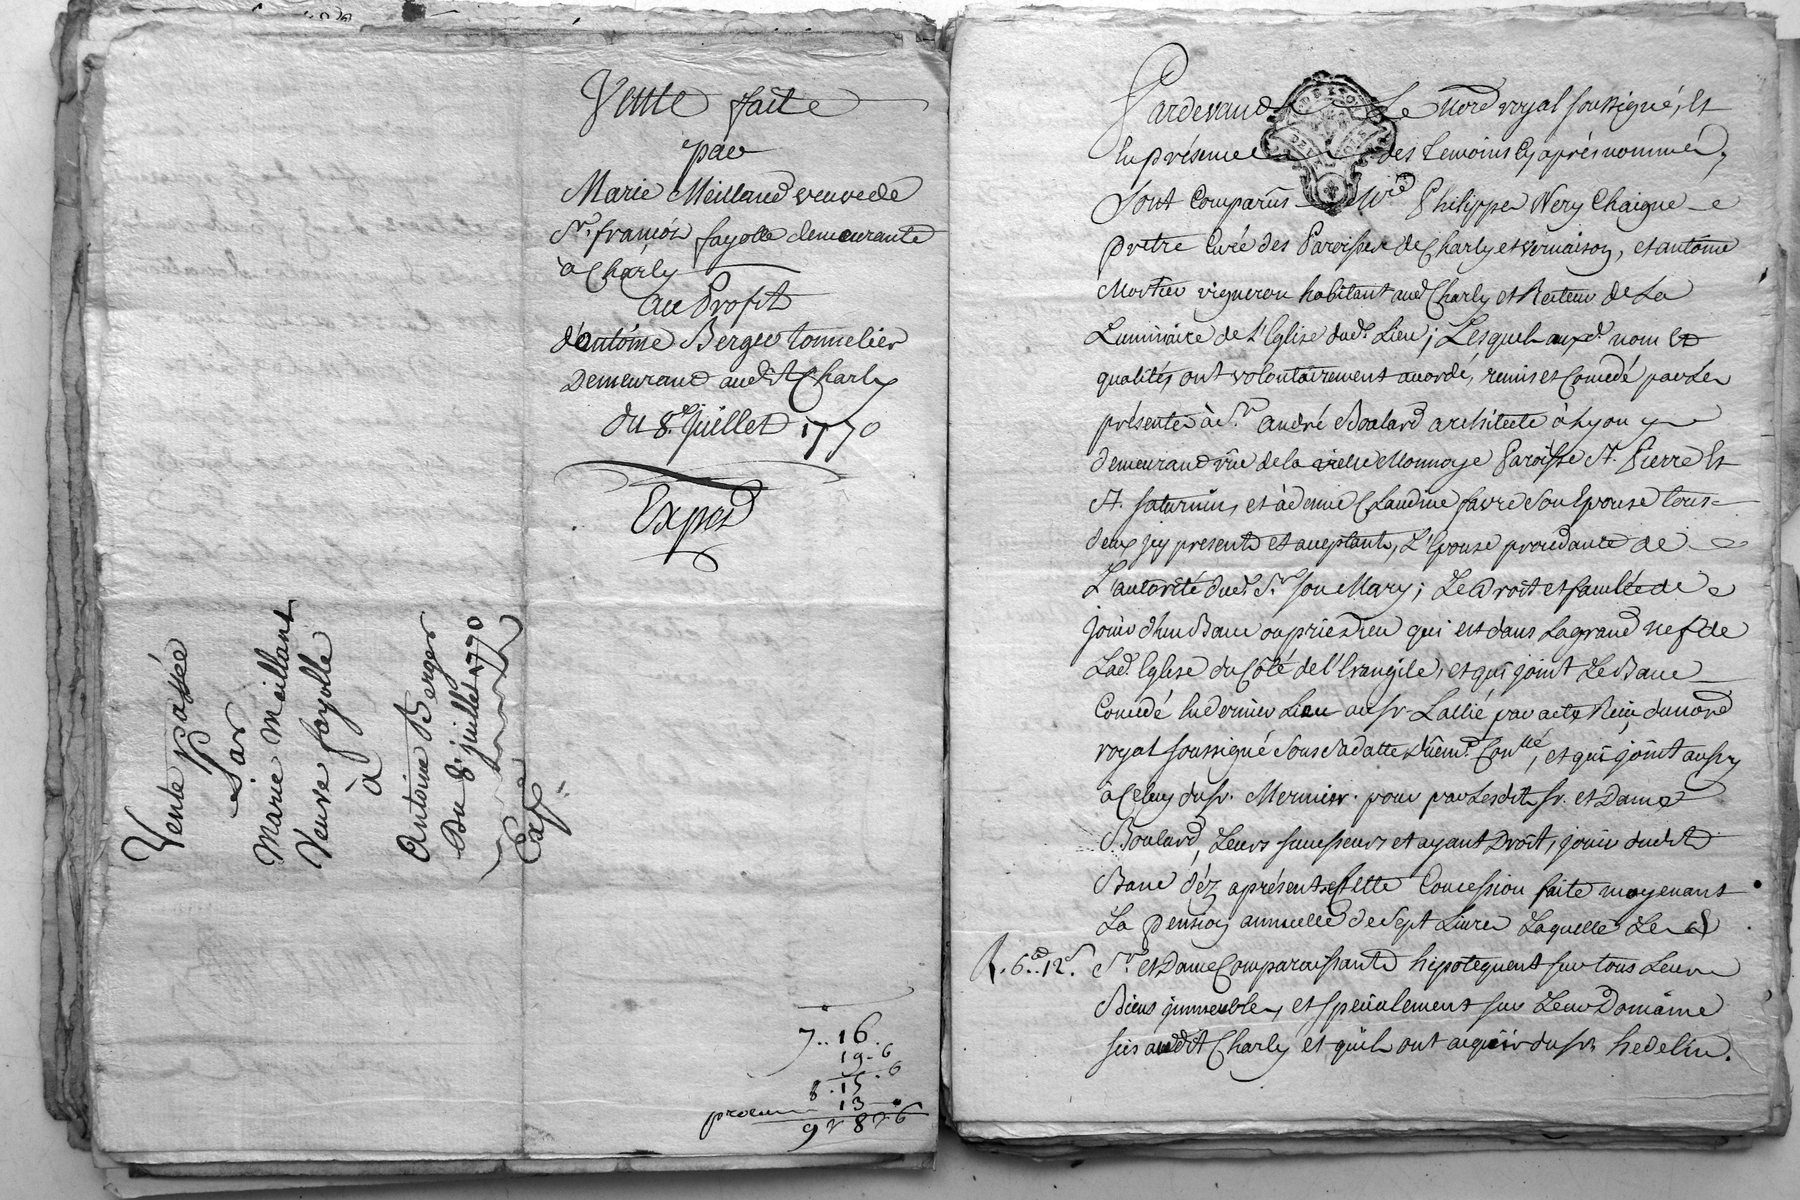 Vente faite
par
Marie Meilland veuve de
Sr. françois fayolle demeurante
à Charly
au Profit
d'antoine Berger tonnelier
Demeurant audit Charly
du 8e. Juillet 1770
Exped
Vente Passée
Par
Marie Meillant
Veuve fayolle
à
Antoine Berger
Du 8e juillet 1770
Exp.
7.. 16.
19 - 6
8 . 15 . 6
13
9 8 6
Pardevant Le Nore royal soussigné, Et
En présence des temoins Cy après nommés,
Sont Comparus Mre Philippe Nery Chaigne
prêtre Curé des Paroisses de Charly et vernaison, et antoine
Mortier vigneron habitant aud. Charly et Recteur de La
Luminaire de L'Eglise dud. Lieu; Lesquels auxd. nom Et
qualités ont volontairement accordé, remis et Concedé par Les
présentes à Sr. André Boulard architecte à Lyon y
demeurant rüe de la vieille Monnoye Paroisse St. Pierre Et
St. Saturnin, et à demlle Claudine favre Son Epouse tous
deux jcy presents et acceptants, L'Epouse procedante de
L'autorité dud. Sr. son Mary; Le Droit et faculté de
jouir d'un Banc ou prie Dieu qui est dans La grand nef de
Lad. Eglise du Côté de l'Evangile, et qui joint Le Banc
Concedé en dernier Lieu au sr. Lallié par acte Reçu dunord
royal soussigné Sous Sa datte Dûem. Conllé, et qui joint aussy
à Celuy du sr. Mernier. pour par Lesdits sr. et Dame
Boulard, Leurs successeurs et ayant Droit, jouir dudit
Banc déz apresent, Cette Concession faite moyenant
La pension annuelle de Sept Livres Laquelle Les d
R. 6.. 12s.
Sr. et Dame Comparaissants hipotequent sur tous Leurs
Biens jmmeubles, et specialement sur Leur Domaine
sis audit Charly et qu'ils ont acquis du sr. hedelin.